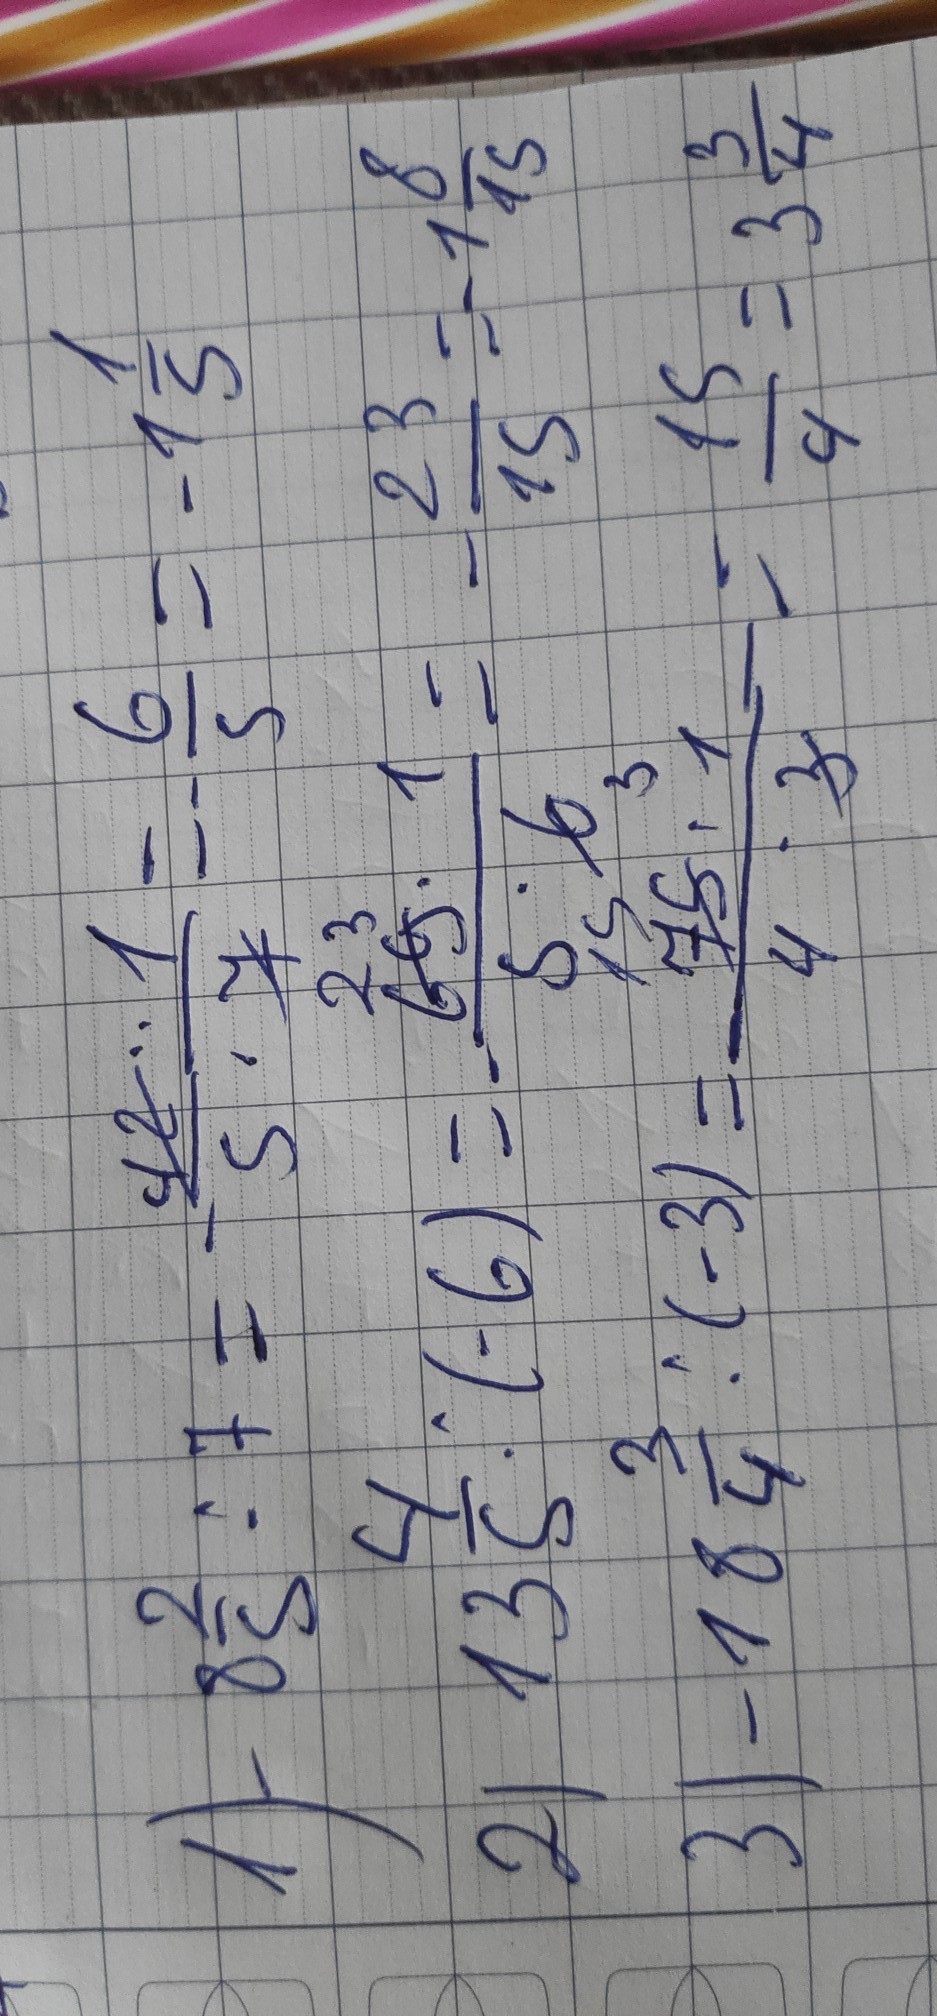 1) - 8 2/5 : 7 = - 42 · 1 / 5 · 7 = - 6/5 = - 1 1/5
2) 13 4/5 : (-6) = - 23 69 · 1 / 5 · 6 3 = - 23/15 = - 1 8/15
3) - 18 3/4 : (-3) = 15 75 · 1 / 4 · 3 = 15/4 = 3 3/4